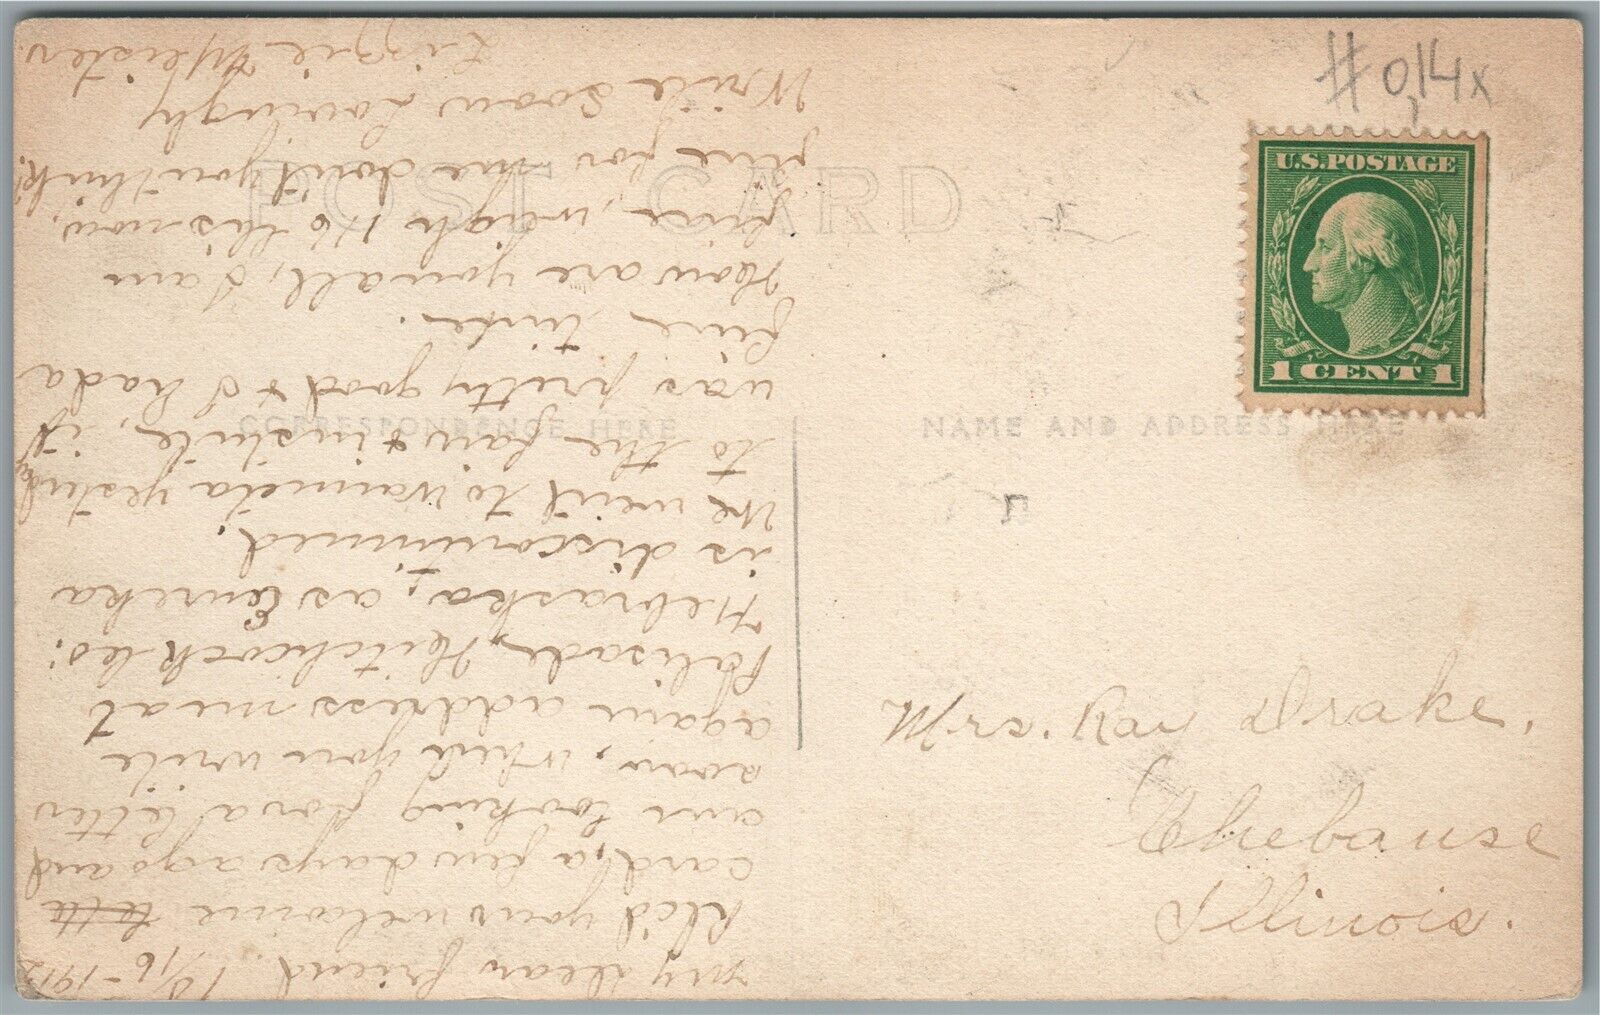 my dear friend. 10/16-1912
Rec'd your welcome
card, a few days ago and
am looking for a letter
soon, when you write
again address me at
Palisade, Hitchcock Co.
Nebraska, as Eureka
is discontinued.
We went to Wauneta yesterday
to the farm institute, it
was pretty good & I had a
fine time.
How are you all, I am
fine, weigh 116 lbs now,
fine for me don't you think?
Write soon Lovingly
Lizzie
POST CARD
CORRESPONDENCE HERE
NAME AND ADDRESS HERE
#0,14x
U.S. POSTAGE
1 CENT 1
Mrs. Ray Drake.
Chebanse
Illinois.